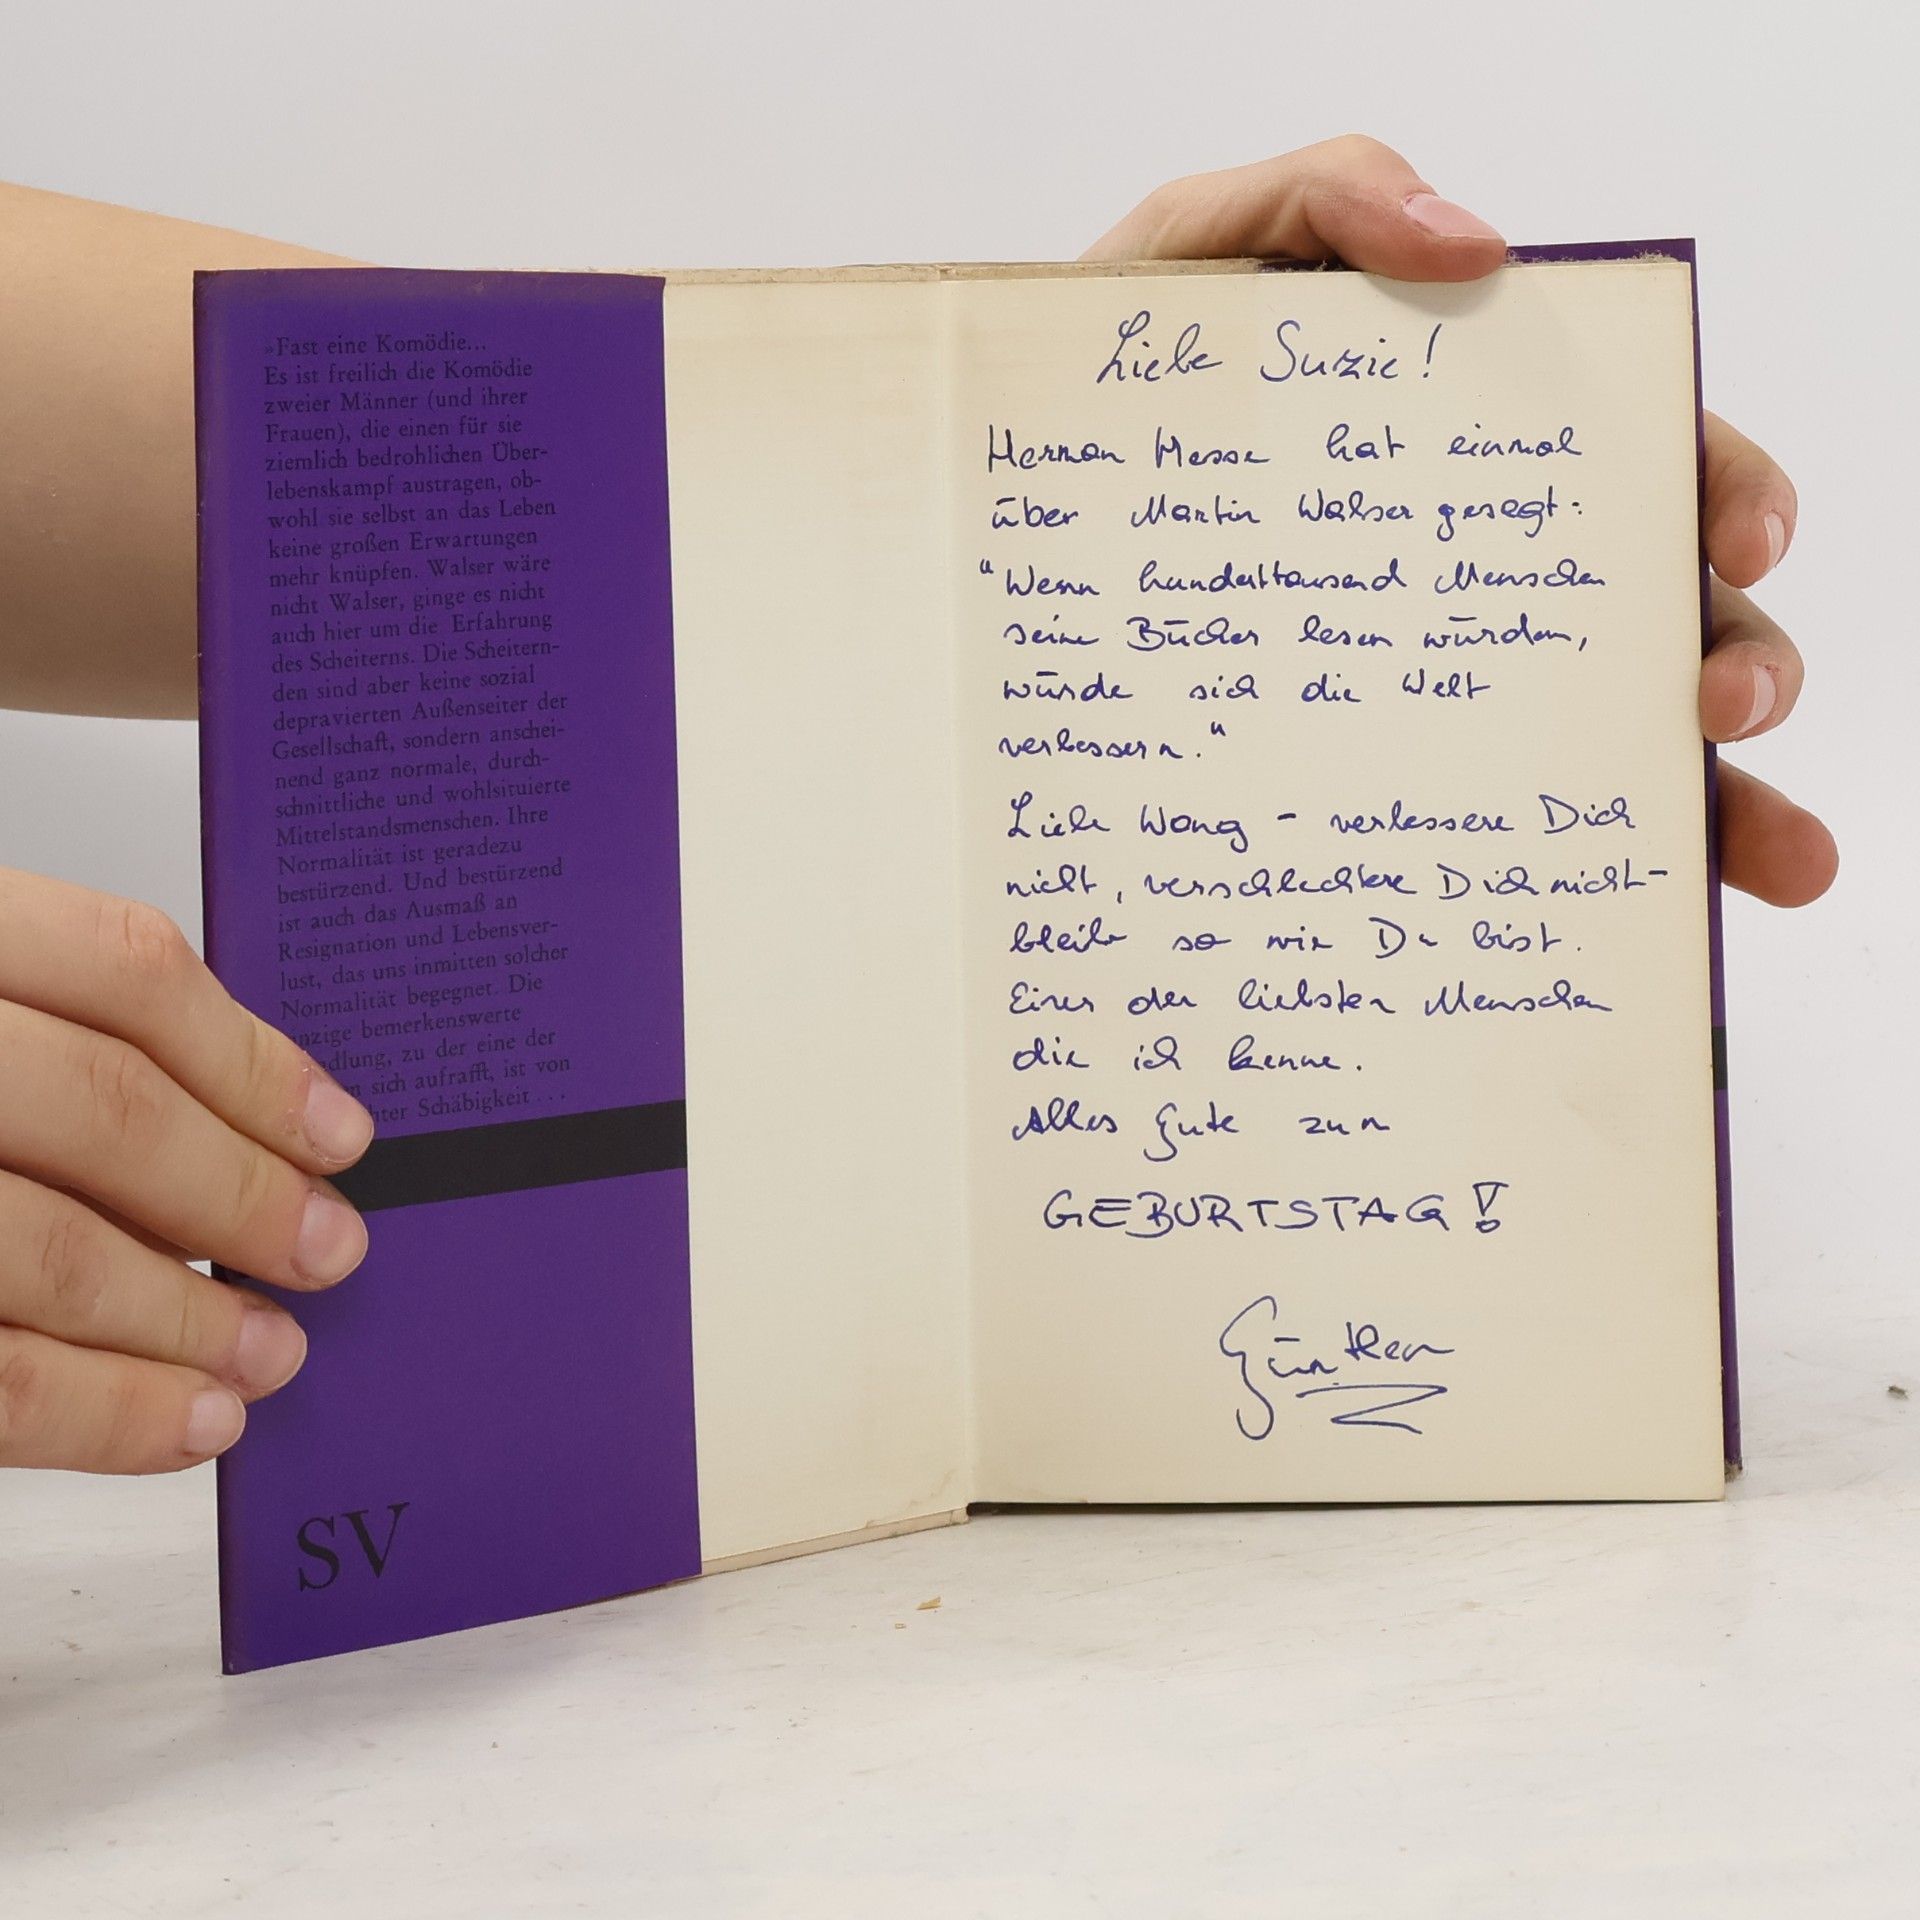 »Fast eine Komödie...
Es ist freilich die Komödie
zweier Männer (und ihrer
Frauen), die einen für sie
ziemlich bedrohlichen Über-
lebenskampf austragen, ob-
wohl sie selbst an das Leben
keine großen Erwartungen
mehr knüpfen. Walser wäre
nicht Walser, ginge es nicht
auch hier um die Erfahrung
des Scheiterns. Die Scheitern-
den sind aber keine sozial
depravierten Außenseiter der
Gesellschaft, sondern anschei-
nend ganz normale, durch-
schnittliche und wohlsituierte
Mittelstandsmenschen. Ihre
Normalität ist geradezu
bestürzend. Und bestürzend
ist auch das Ausmaß an
Resignation und Lebensver-
lust, das uns inmitten solcher
Normalität begegnet. Die
inzige bemerkenswerte
dlung, zu der eine der
n sich aufrafft, ist von
hter Schäbigkeit . . .
SV
Liebe Suzie!
Herman Hesse hat einmal
über Martin Walser gesagt:
"Wenn hunderttausend Menschen
seine Bücher lesen würden,
würde sich die Welt
verbessern."
Liebe Wong - verbessere Dich
nicht, verschlechtere Dich nicht-
bleibe so wie Du bist.
Einer der liebsten Menschen
die ich kenne.
Alles Gute zum
GEBURTSTAG!
Günther